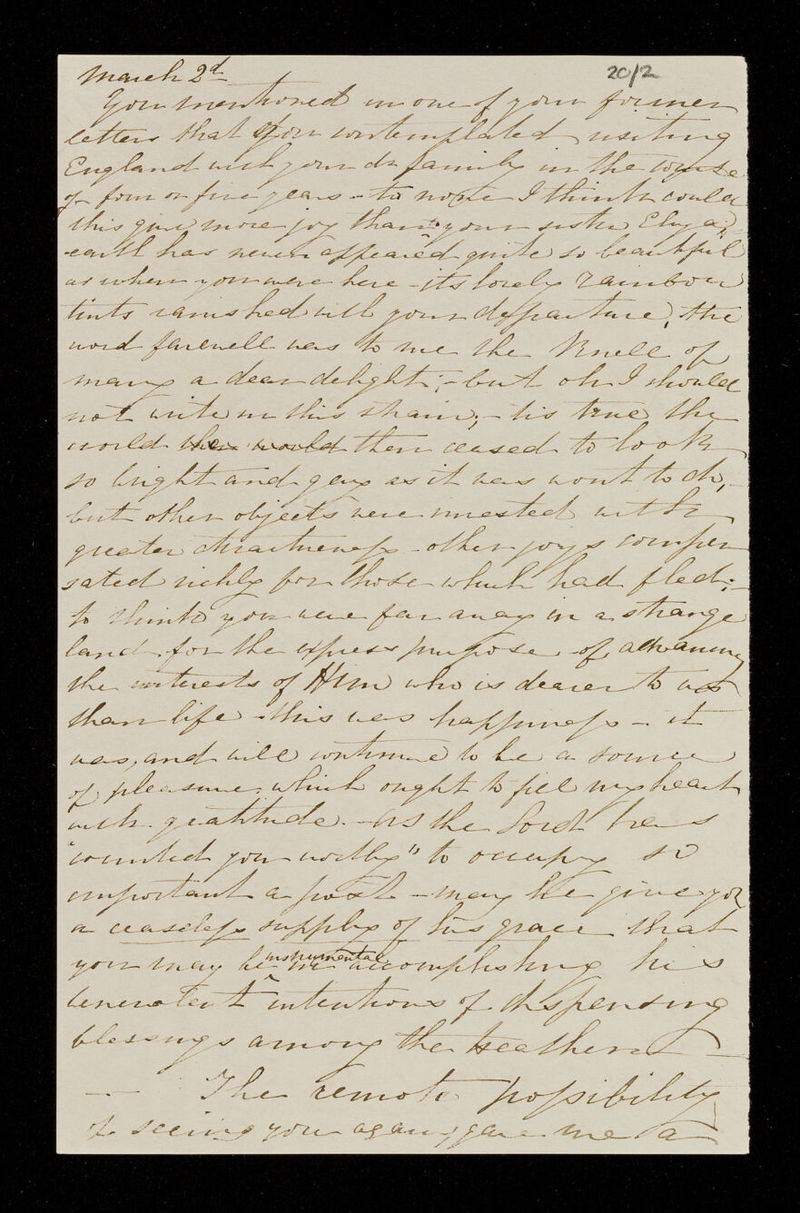 March 2d
20/2
You mentioned in one of your former
letters that you contemplated visiting
England with your dr family in the course
of four or five years - to none I think could
this give more joy than to your sister Eliza,
earth has never "appeared quite so beautiful"
as when you were here - its lovely rainbow
tints vanished with your departure, the
word farewell was to me the knell of
many a dear delight; - but oh I should
not write in this strain, - tis true the
world then would then ceased to look
so bright and gay as it was wont to do, -
but other objects were invested with
greater attractiveness - other joys compen
sated richly for those which had fled; -
to think you were far away in a strange
land for the express purpose of advancing
the interests of Him who is dearer to us
than life - this was happiness - it
was, and will continue to be a source
of pleasure which ought to fill my heart
with gratitude. - As the Lord has
"counted you worthy" to occupy so
important a post - may he give you
a ceaseless supply of his grace that
you may be instrumental in accomplishing his
benevolent intentions of dispensing
blessings among the heathen -
- The remote possibility
of seeing you again, gave me a